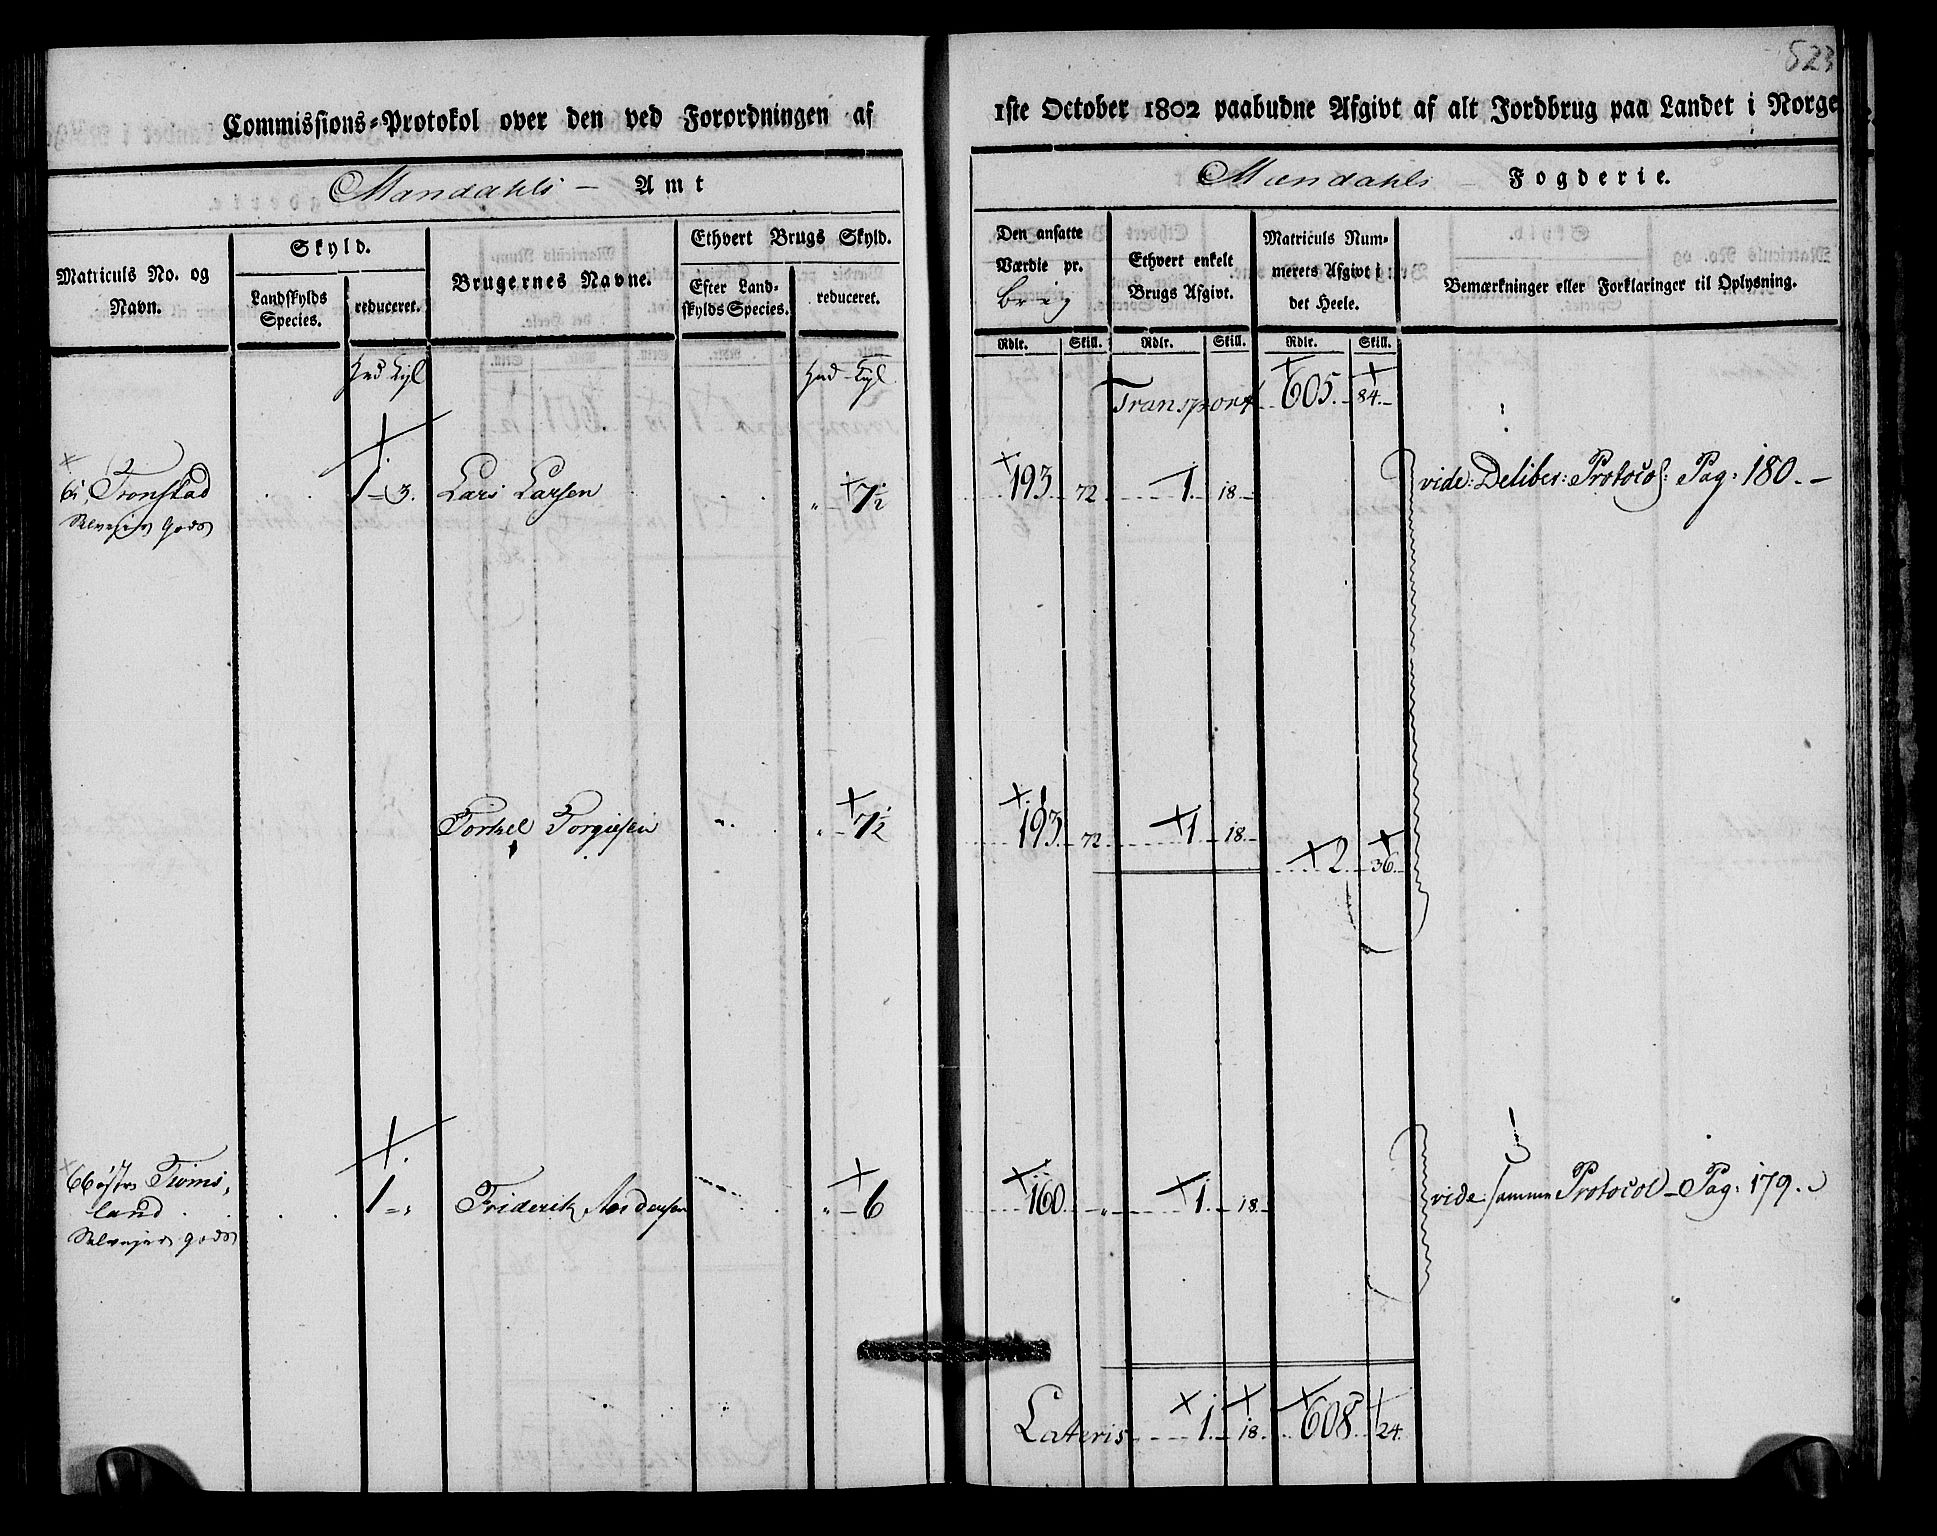 523
Commissions-Protokol over den ved Forordningen af 1ste October 1802 paabudne Afgivt af alt Jordbrug paa Landet i Norge
Mandahls — Amt
Mandahls — Fogderie.
Matriculs No. og Navn.
Skyld.
Landskylds Species.
reduceret.
Brugernes Navne.
Ethvert Brugs Skyld.
Efter Landskylds Species.
reduceret.
Den ansatte Værdie pr.
brug
Ethvert enkelt Brugs Afgivt.
Matriculs Nummerets Afgivt i det Heele.
Bemærkninger eller Forklaringer til Oplysning.
Rdlr. Skill. Rdlr. Skill. Rdlr. Skill.
Transport 605. 84.
Tronstad 1 - 3. Lars Larsen " - 7½ 193 72 1. 18 vide: Deliber: Protocol: Pag: 180. -
Selveier Gods
Torkel Torgiesen " - 7½ 193. 72 1. 18.
2 36.
66 østre Troms-
land 1 - " Friderik Andersen " - 6 160. " 1. 18. vide: samme Protocol - Pag: 179.
Selveier gods
Lateris 1. 18. 608. 24.